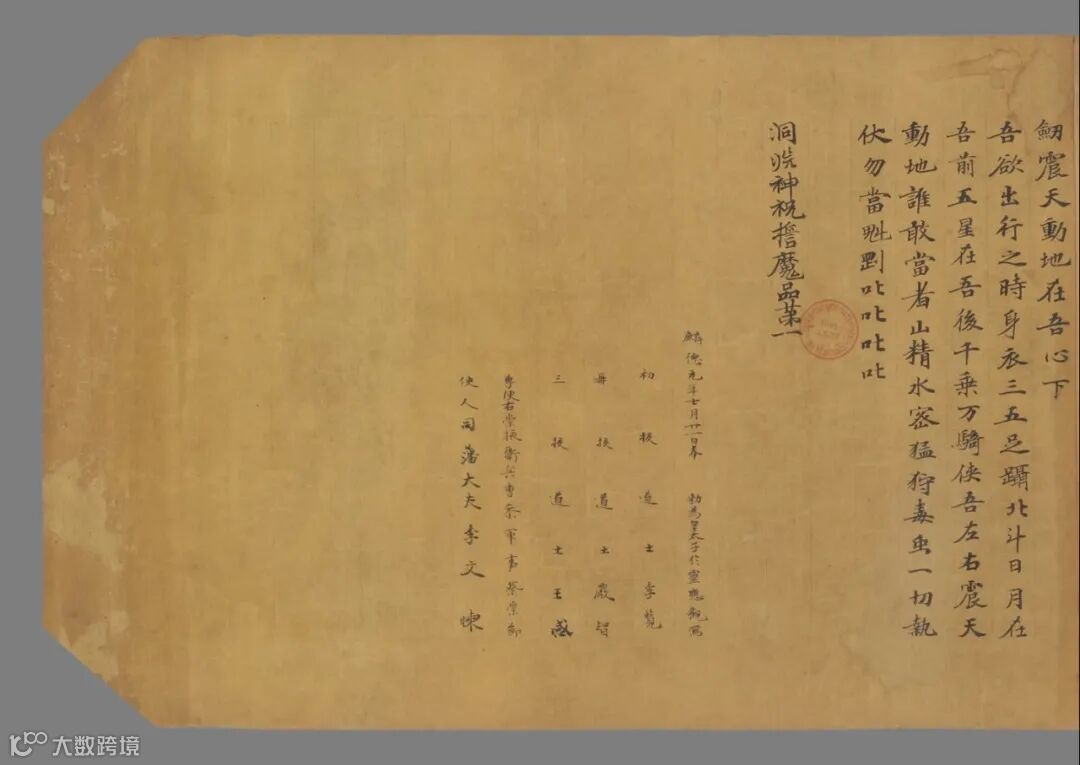 劒震天動地在吾心下
吾欲出行之時身衣三五足躡北斗日月在
吾前五星在吾後千乗万騎侠吾左右震天
動地誰敢當者山精水㴵猛狩毒虫一切執
伏勿當魀剛叱叱叱叱
洞淵神祝擔魔品第一
麟德元年七月廿一日奉 勅為皇太子於靈應觀寫
初校道士李覽
再校道士嚴智
三校道士王感
專使右崇掖衛兵曹叅軍事蔡崇節
使人司藩大夫李文暕
大数跨境